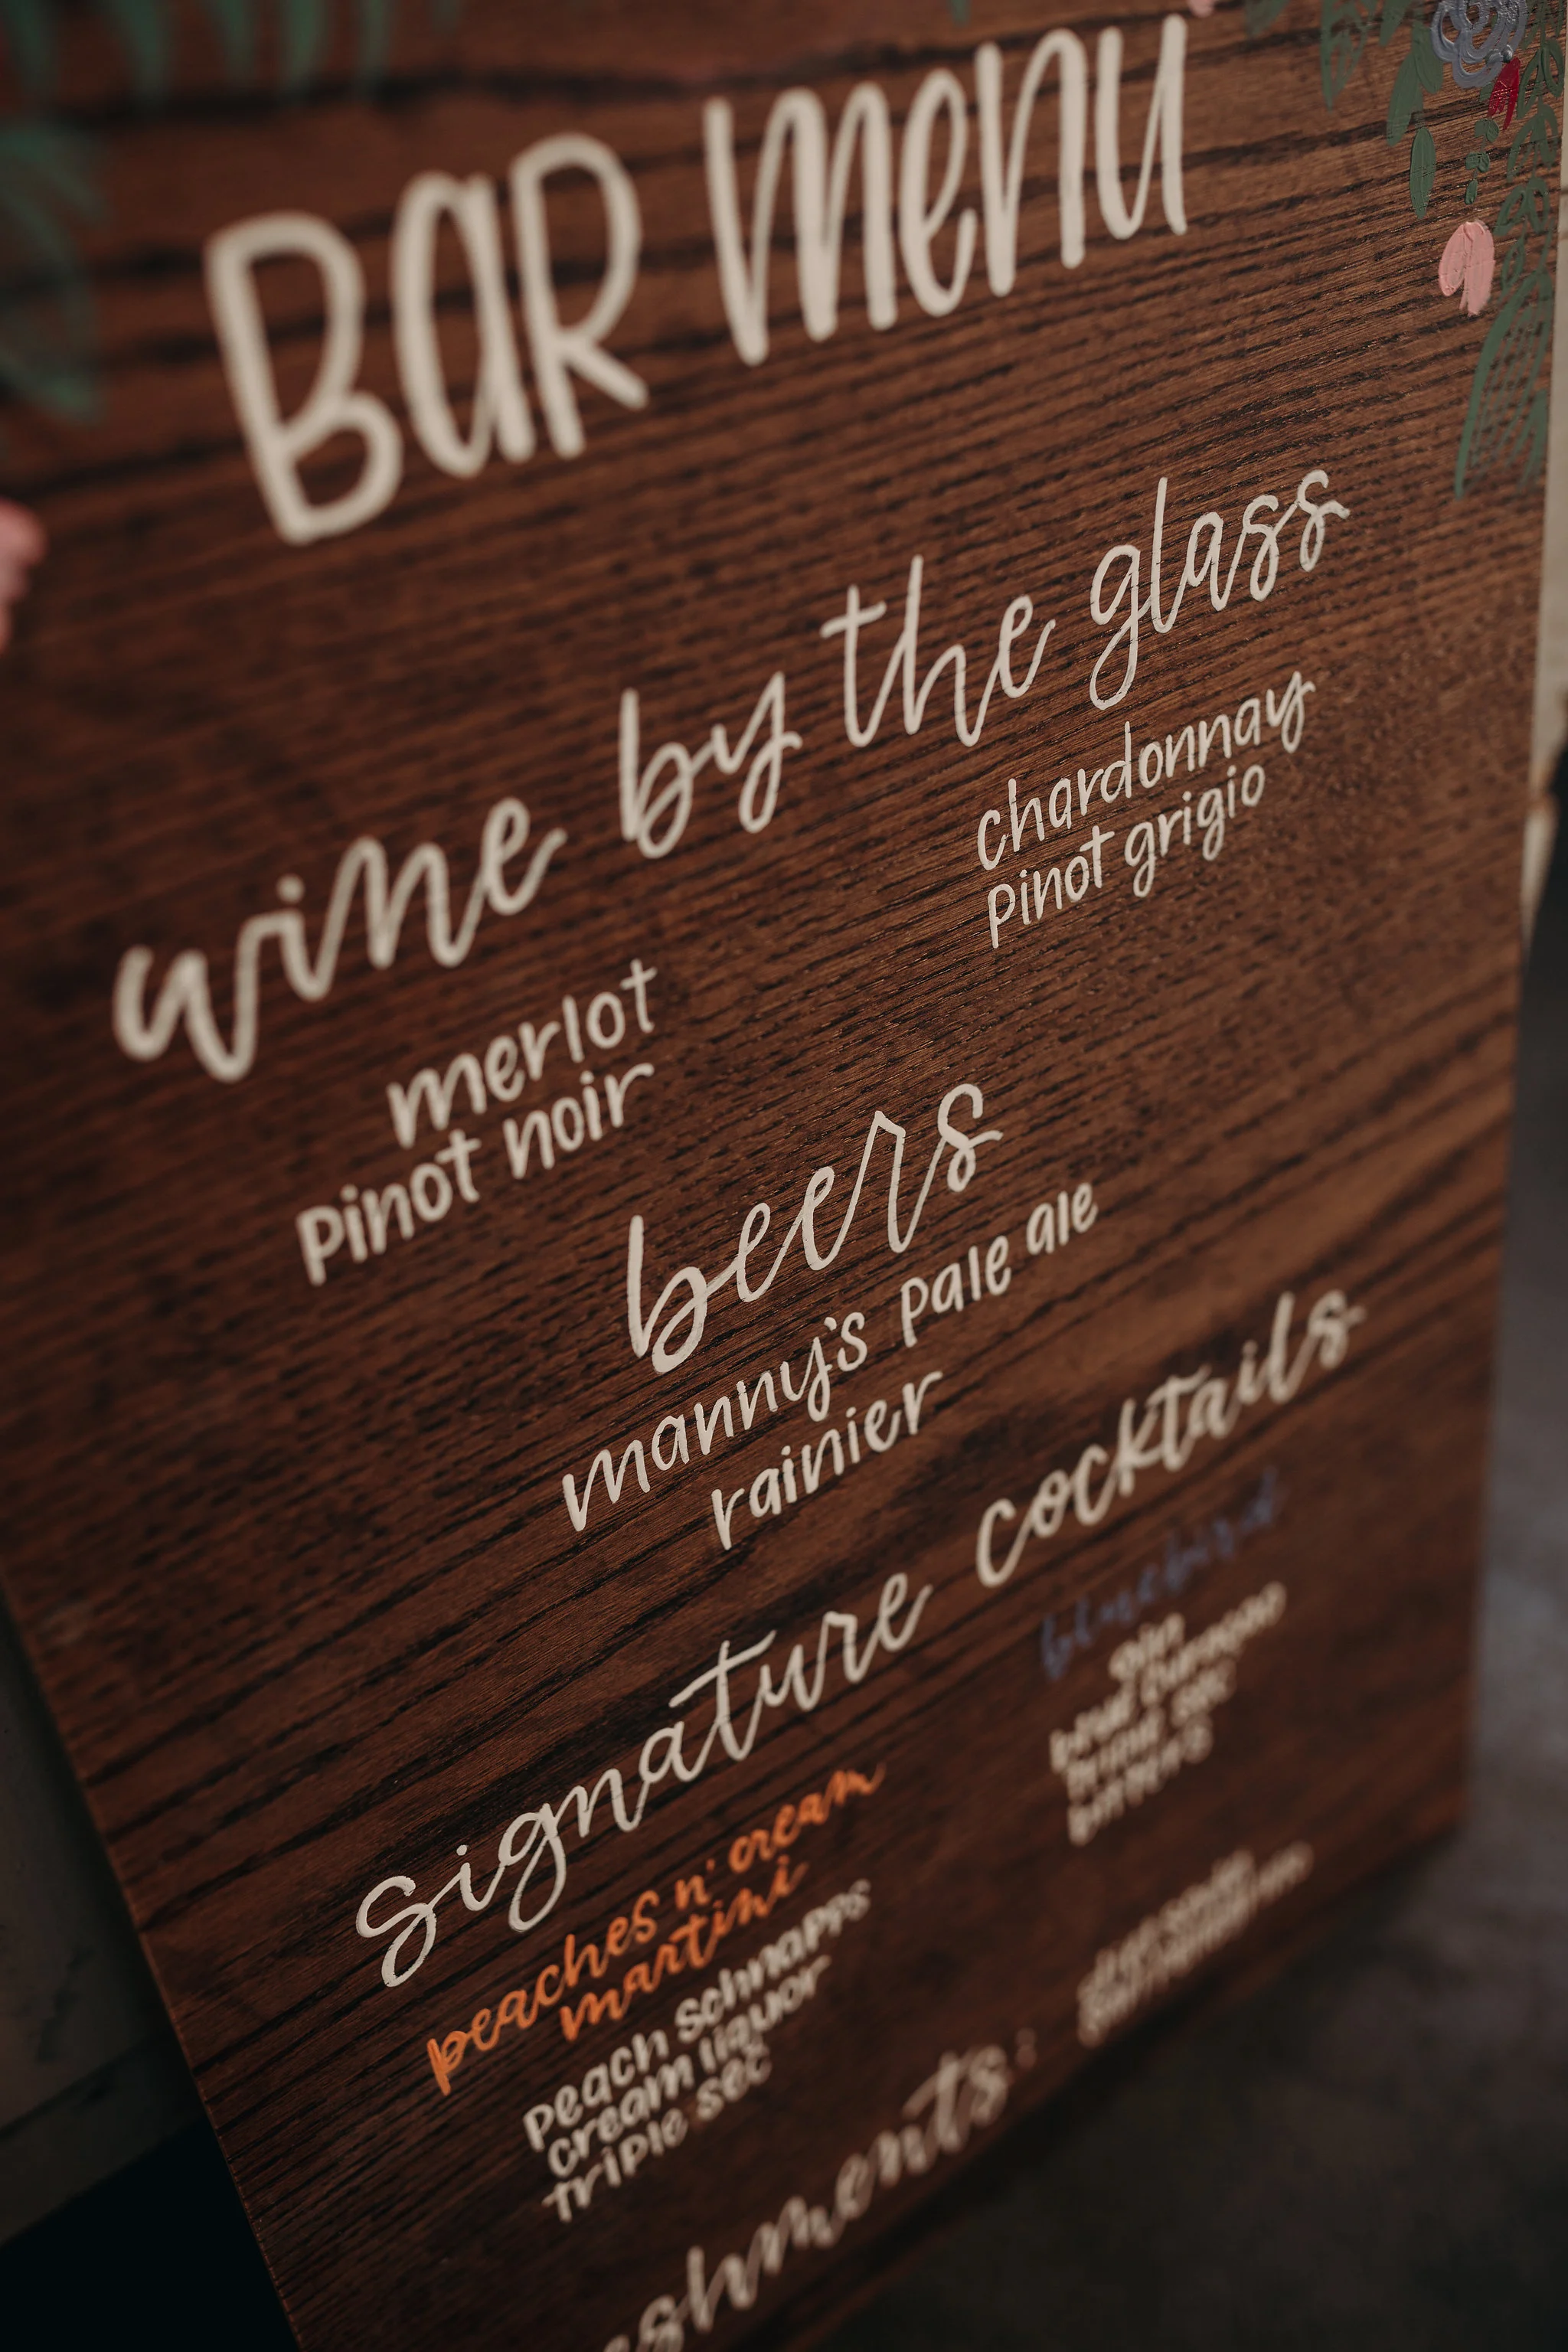 BAR menu
wine by the glass
merlot
pinot noir
chardonnay
pinot grigio
beers
manny's pale ale
rainier
signature cocktails
peaches n' cream
martini
peach schnapps
cream liquor
triple sec
bluebird
gin
blue curacao
triple sec
bitters